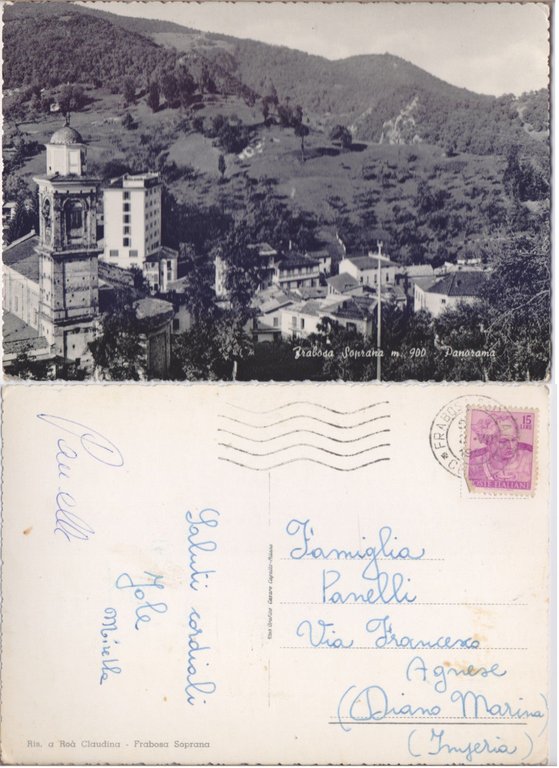 Frabosa Soprana m. 900 - Panorama
15
LIRE
POSTE ITALIANE
Saluti cordiali
Jole
Mirella
Famiglia
Panelli
Via Francesco
Agnese
(Diano Marina)
(Imperia)
Ris. a Roà Claudina - Frabosa Soprana